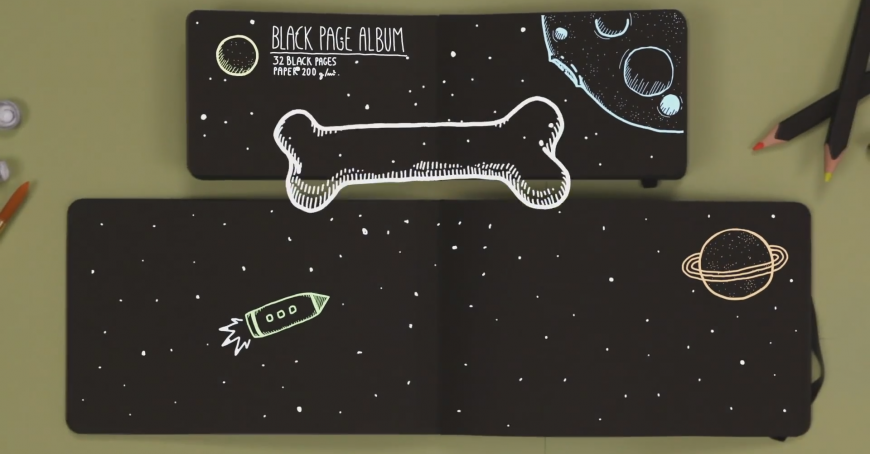 BLACK PAGE ALBUM
32 BLACK PAGES
PAPER 200 g/m².